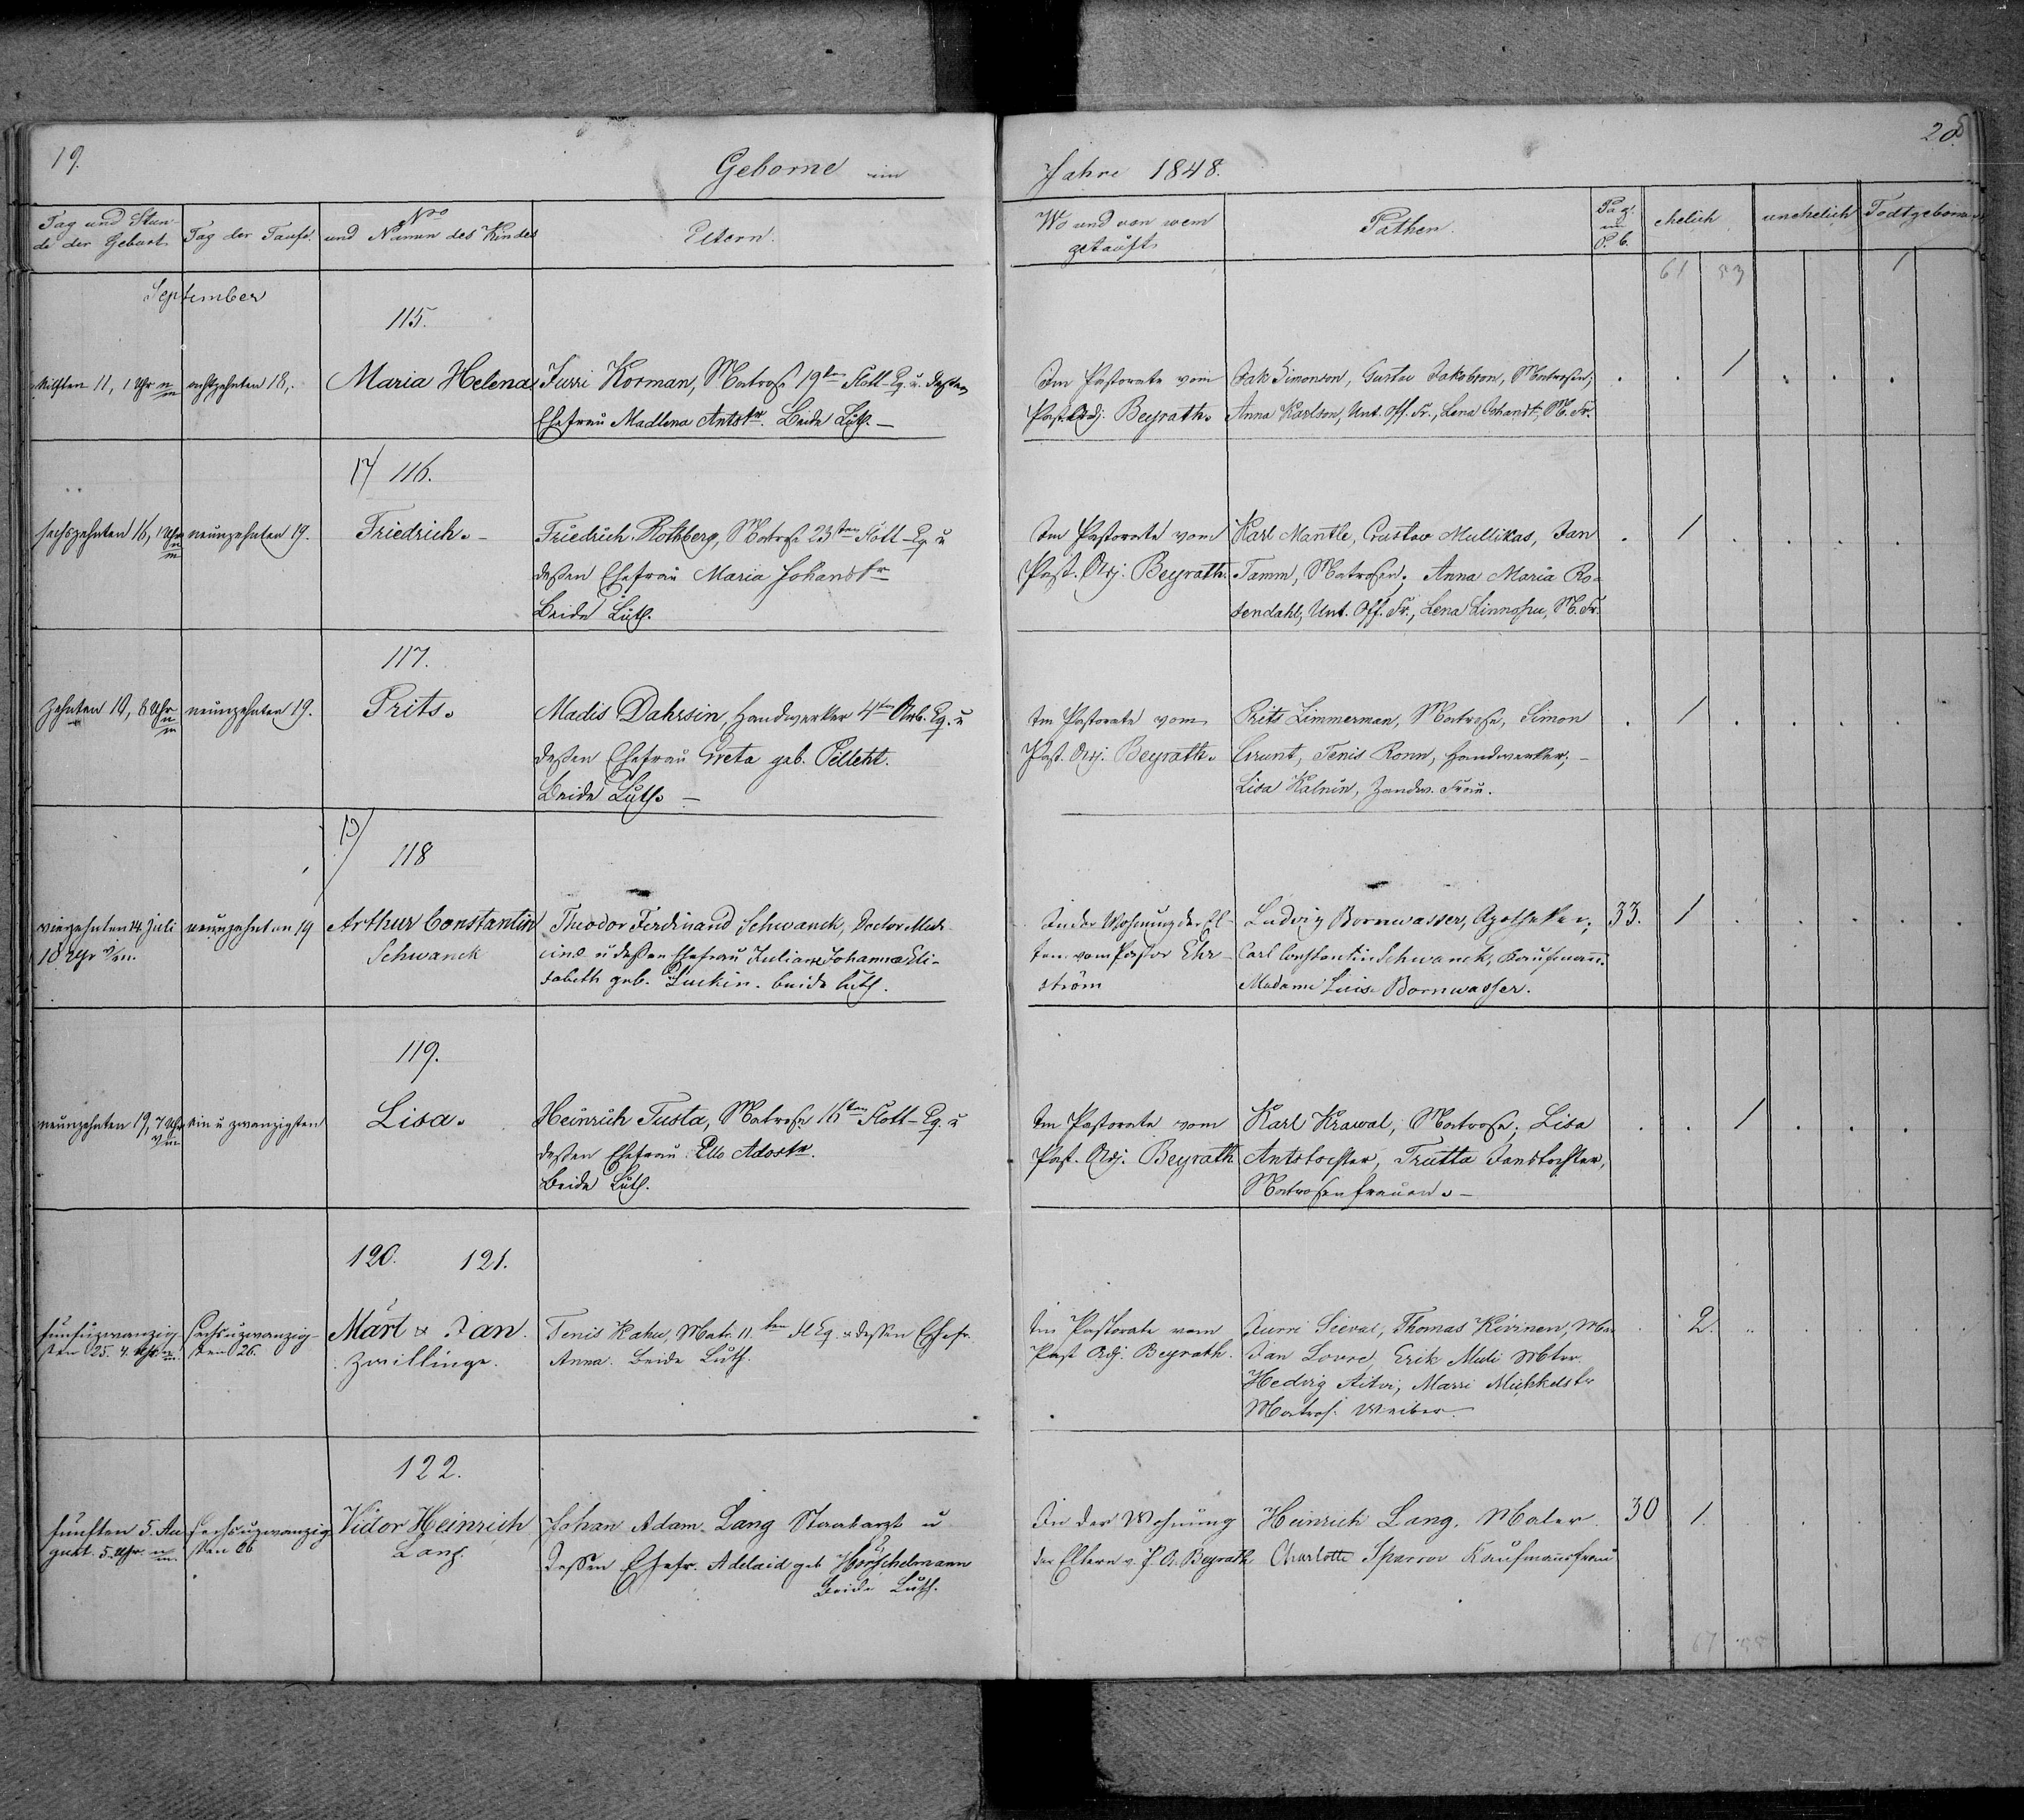 19.
Geborne im
Tag und Stun-
de der Geburt.
Tag der Taufe.
Nro
und Namen des Kindes
Eltern.
September
115.
eilften 11, 1 Uhr n/m
achtzehnten 18.
Maria Helena
Jurri Korman, Matrose 19ten Flott-Eq. u. deßen
Ehefrau Madlena Antstr. Beide Luth. —
17/ 116.
sechszehnten 16, 1 Uhr n/m
neunzehnten 19.
Friedrich. -
Friedrich Rothberg, Matrose 23sten Flott-Eq. u
deßen Ehefrau Maria Johanstr
Beide Luth.
117.
zehnten 10, 8 Uhr n/m
neunzehnten 19.
Prits.
Madis Dahrsin, Handwerker 4ten Arb. Eq. u
deßen Ehefrau Greta geb. Pelleht.
Beide Luth. —
118
vierzehnten 14 Juli
10 Uhr V/m.
neunzehnten 19
Arthur Constantin
Schwanck
Theodor Ferdinand Schwanck, Doctor Medi-
cinae u deßen Ehefrau Juliane Johanna Eli-
sabeth geb. Luckin. beide luth.
119.
neunzehnten 19, 7 Uhr V/m
ein u zwanzigsten
Lisa.
Heinrich Tusta, Matrose 16ten Flott-Eq. u
deßen Ehefrau Ello Adostr.
Beide Luth.
120. 121.
fünfuzwanzig-
sten 25. 4. Uhr. n/m.
sechsuzwanzig-
sten 26.
Märt & Jan.
Zwillinge.
Tenis Kahu, Matr. 11.ten Fl Eq. & deßen Ehefr.
Anna. Beide Luth.
122.
fünften 5. Au
gust. 5. Uhr. n/m.
sechsuzwanzig
sten 26
Victor Heinrich
Lang.
Johan Adam Lang Staabarzt u
deßen Ehefr. Adelaid geb Hörschelmann
Beide Luth.
20.
Jahre 1848.
Wo und von wem
getauft
Pathen.
Pag.
im
P. b.
ehelich
unehelich
Todtgeborne
61 53 1
Im Pastorate vom
Past. Adj. Beyrath.
Jak Simonson, Gustav Jakobson, Matrosen;
Anna Karlson, Unt. Off. Fr., Lena Johanst, M. Fr.
1
Im Pastorate vom
Past. Adj. Beyrath.
Karl Mantle, Gustav Mullikas, Jan
Tamm, Matrosen; Anna Maria Ro-
sendahl, Unt. Off. Fr., Lena Linnosu, M. Fr.
1
Im Pastorate vom
Past. Adj. Beyrath.
Prits Zimmerman, Matrose, Simon
Grunt, Tenis Ronn, Handwerker; -
Lisa Kalnin, Handw. Frau.
1
In der Wohnung der El-
tern vom Pastor Ehr-
ström
Ludvig Bornwasser, Apotheker;
Carl Constantin Schwanck, Kaufmann.
Madame Luise Bornwasser.
33. 1
Im Pastorate vom
Past. Adj. Beyrath
Karl Krawal, Matrose; Lisa
Antstochter, Trutta Janstochter,
Matrosenfrauen. -
1
Im Pastorate vom
Past Adj. Beyrath.
Jurri Sieval, Thomas Kivinen,
Jan Lovre, Erik Muli Mtr.
Hedvig Aitvi, Marri Michkelstr
Matros. Weiber.
2.
In der Wohnung
der Eltern v. P. A. Beyrath
Heinrich Lang. Maler.
Charlotte Sparrov Kaufmannsfrau
30 1.
67